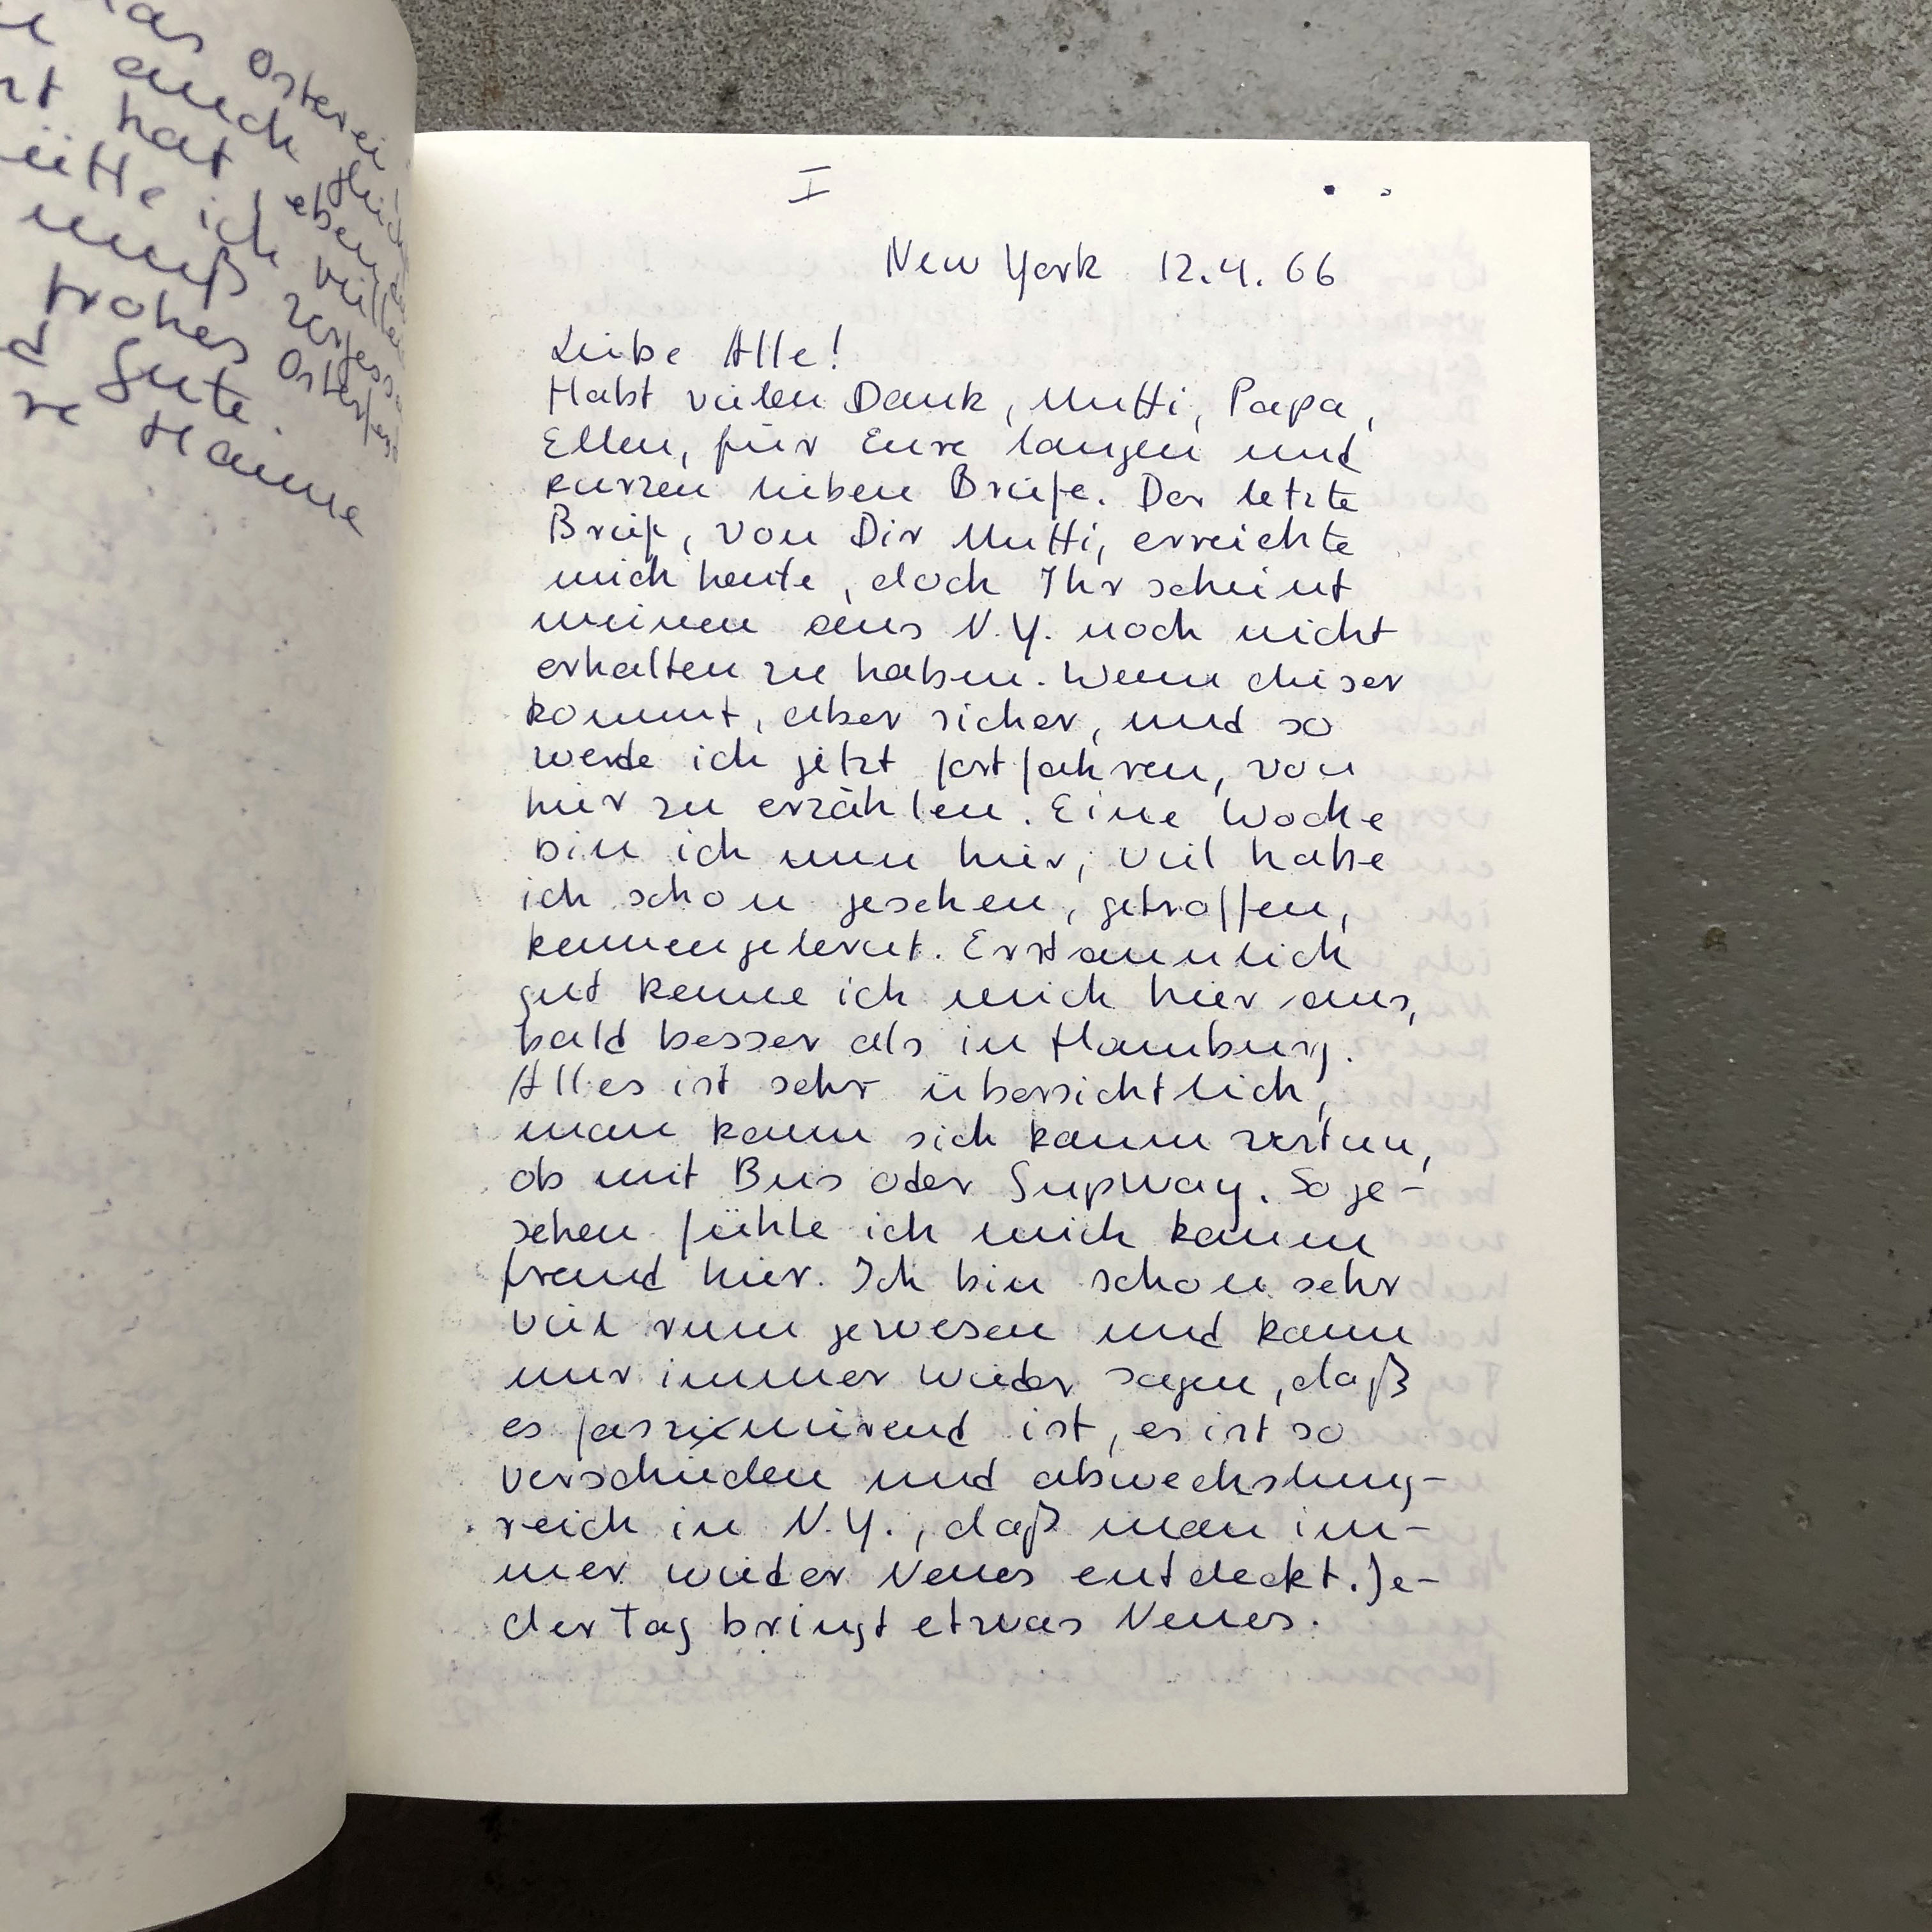 Osterei
auch
hat eben
hätte ich
muß
frohes Oster
Gute.
Hanne
I
New York 12.4.66
Liebe Alle!
Habt vielen Dank, Mutti, Papa,
Ellen, für Eure langen und
kurzen lieben Briefe. Der letzte
Brief, von Dir Mutti, erreichte
mich heute, doch Ihr scheint
meinen aus N.Y. noch nicht
erhalten zu haben. Wenn dieser
kommt, aber sicher, und so
werde ich jetzt fortfahren, von
hier zu erzählen. Eine Woche
bin ich nun hier, viel habe
ich schon gesehen, getroffen,
kennengelernt. Erstaunlich
gut kenne ich mich hier aus,
bald besser als in Hamburg.
Alles ist sehr übersichtlich,
man kann sich kaum vertun,
ob mit Bus oder Supway. So ge-
sehen fühle ich mich kaum
fremd hier. Ich bin schon sehr
viel rum gewesen und kann
nur immer wieder sagen, daß
es faszinierend ist, es ist so
verschieden und abwechslung-
reich in N.Y., daß man im-
mer wieder Neues entdeckt. Je-
der Tag bringt etwas Neues.